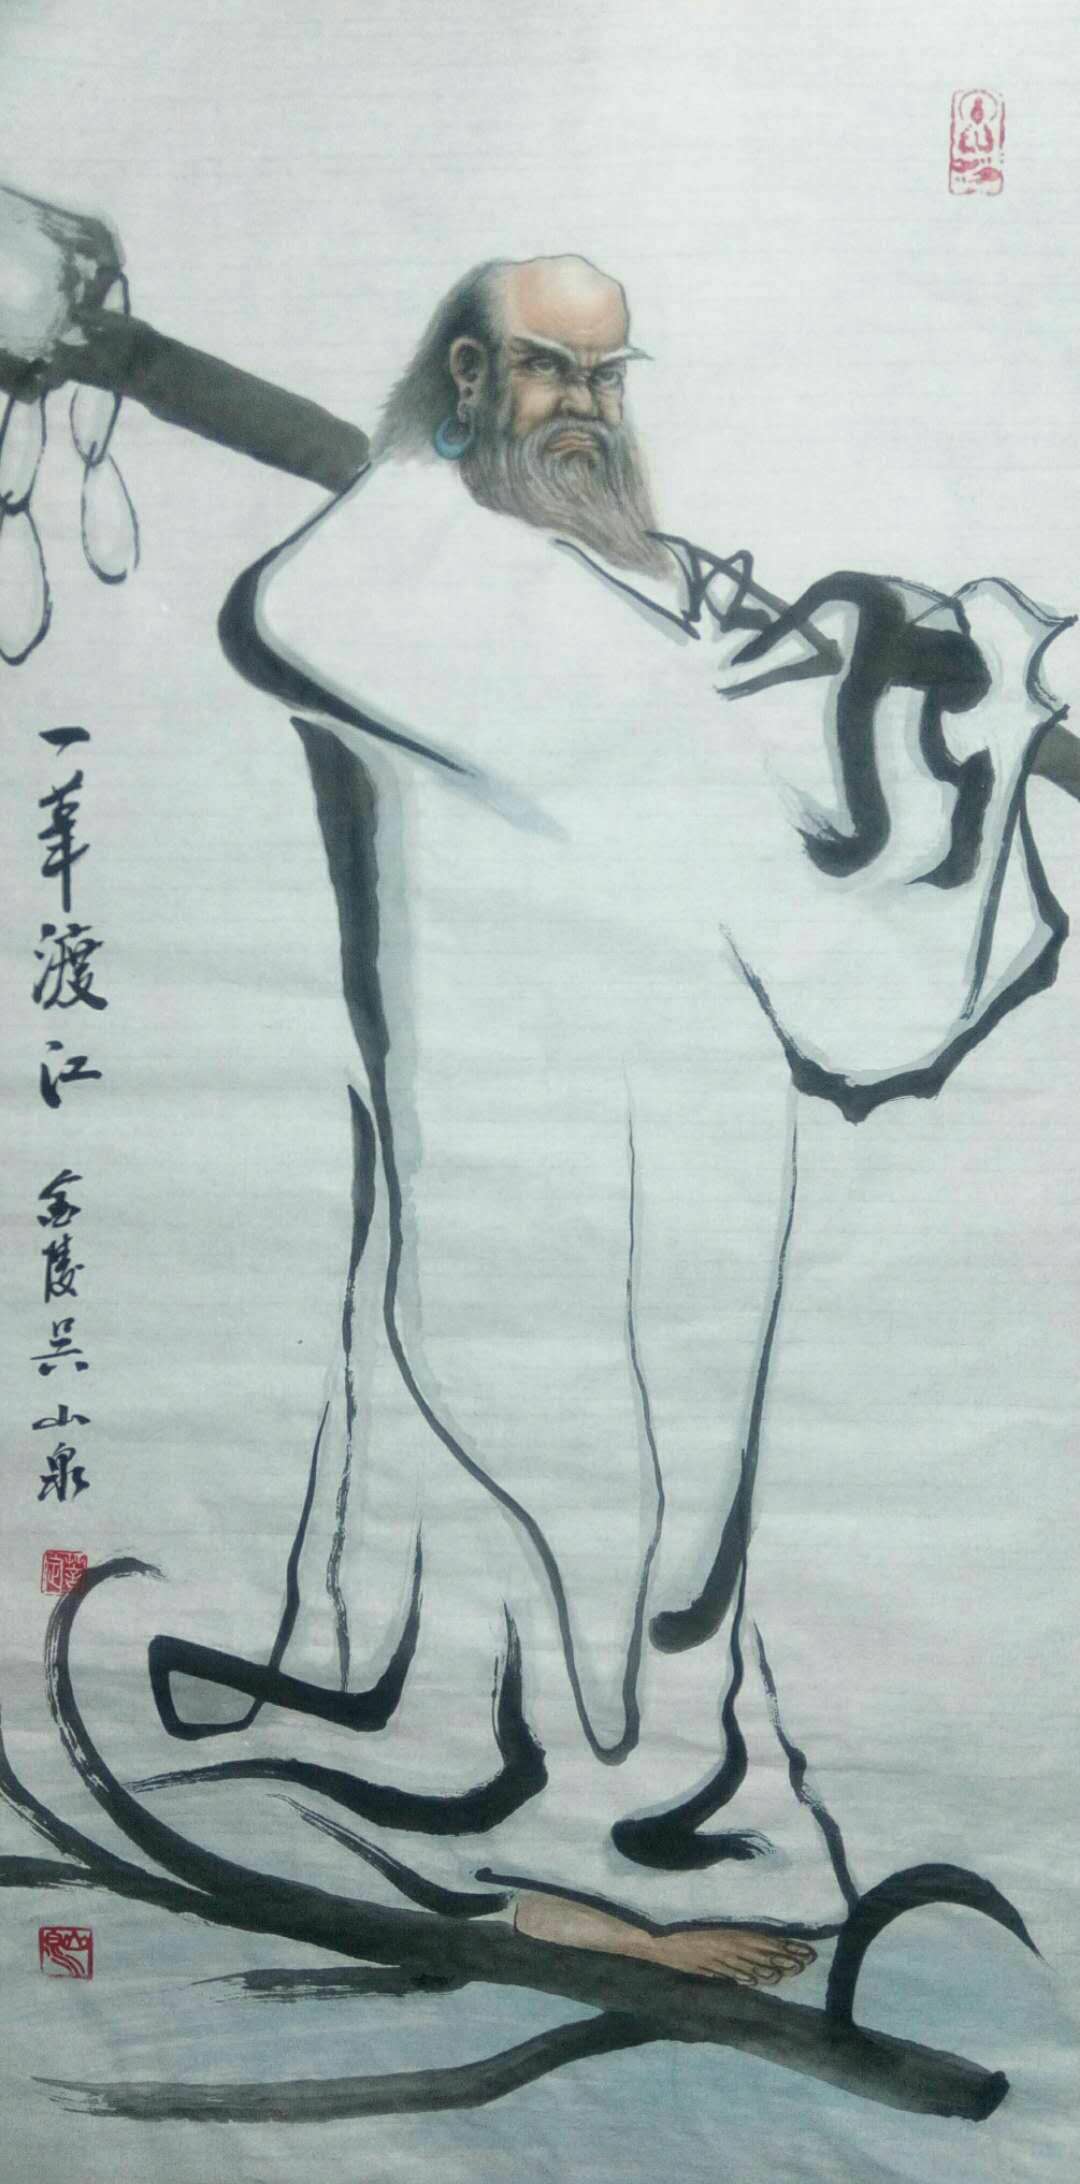 一苇渡江
金陵吴山泉